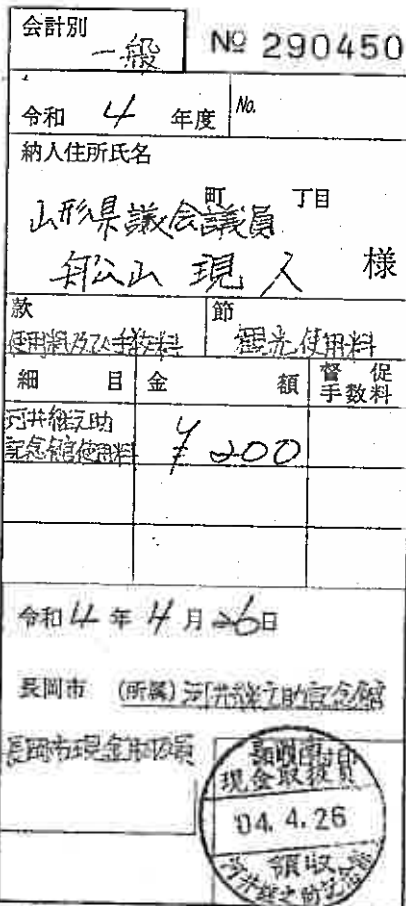 会計別
一般
№ 290450
令和 4 年度
No.
納人住所氏名
町 丁目
山形県議会議員
舩山 現人 様
款
節
使用料及び手数料
観光使用料
細 目
金 額
督促手数料
河井継之助
記念館使用料
¥200
令和4年4月26日
長岡市 (所属) 河井継之助記念館
長岡市現金取扱員
現金取扱員
04.4.26
領収
河井継之助記念館